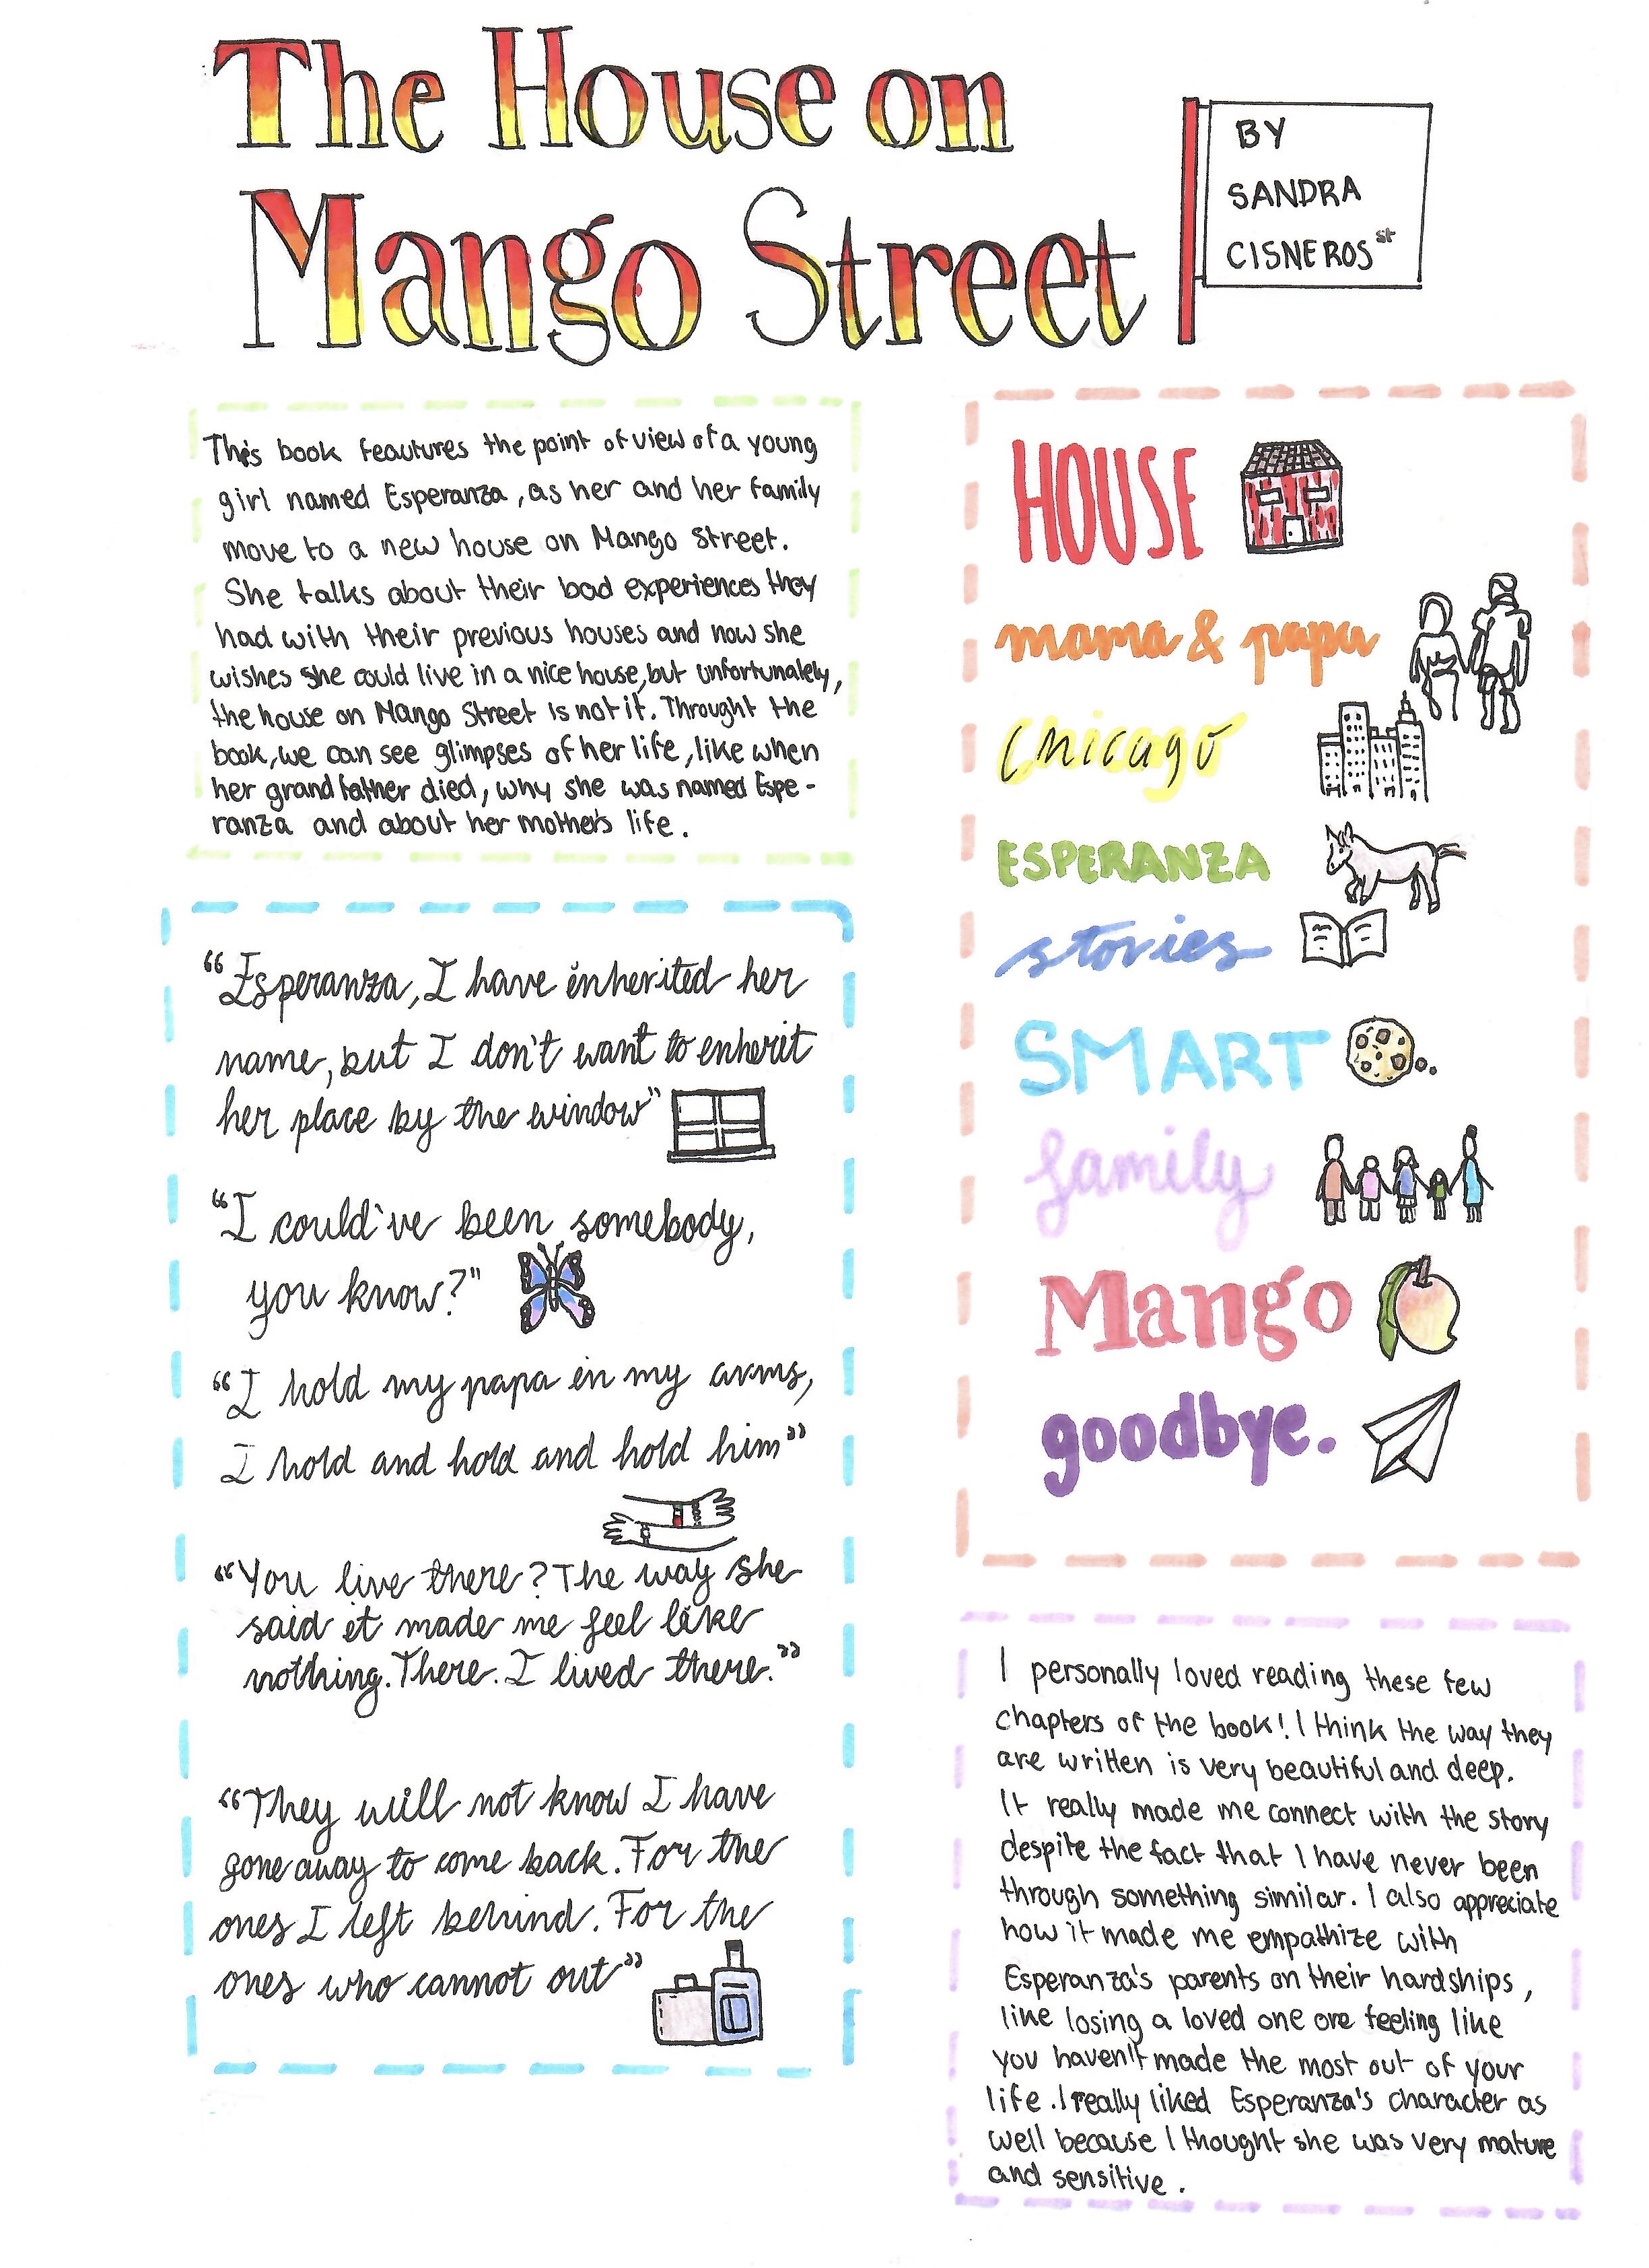 The House on
Mango Street
BY
SANDRA
CISNEROS st
This book feautures the point of view of a young
girl named Esperanza, as her and her family
move to a new house on Mango Street.
She talks about their bad experiences they
had with their previous houses and now she
wishes she could live in a nice house, but unfortunately,
the house on Mango Street is not it. Throught the
book, we can see glimpses of her life, like when
her grandfather died, why she was named Espe-
ranza and about her mother's life.
"Esperanza, I have inherited her
name, but I don't want to enherit
her place by the window"
"I could've been somebody,
you know?"
"I hold my papa in my arms,
I hold and hold and hold him"
"You live there? The way she
said it made me feel like
nothing. There. I lived there."
"They will not know I have
gone away to come back. For the
ones I left behind. For the
ones who cannot out"
HOUSE
mama & papa
chicago
ESPERANZA
stories
SMART
family
Mango
goodbye.
I personally loved reading these few
chapters of the book! I think the way they
are written is very beautiful and deep.
It really made me connect with the story
despite the fact that I have never been
through something similar. I also appreciate
how it made me empathize with
Esperanza's parents on their hardships,
like losing a loved one ore feeling like
you haven't made the most out of your
life. I really liked Esperanza's character as
well because I thought she was very mature
and sensitive.